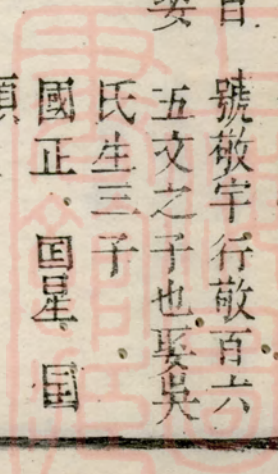 號敬宇行敬百六
五文之子也娶吳
氏生三子
國正 国星 国